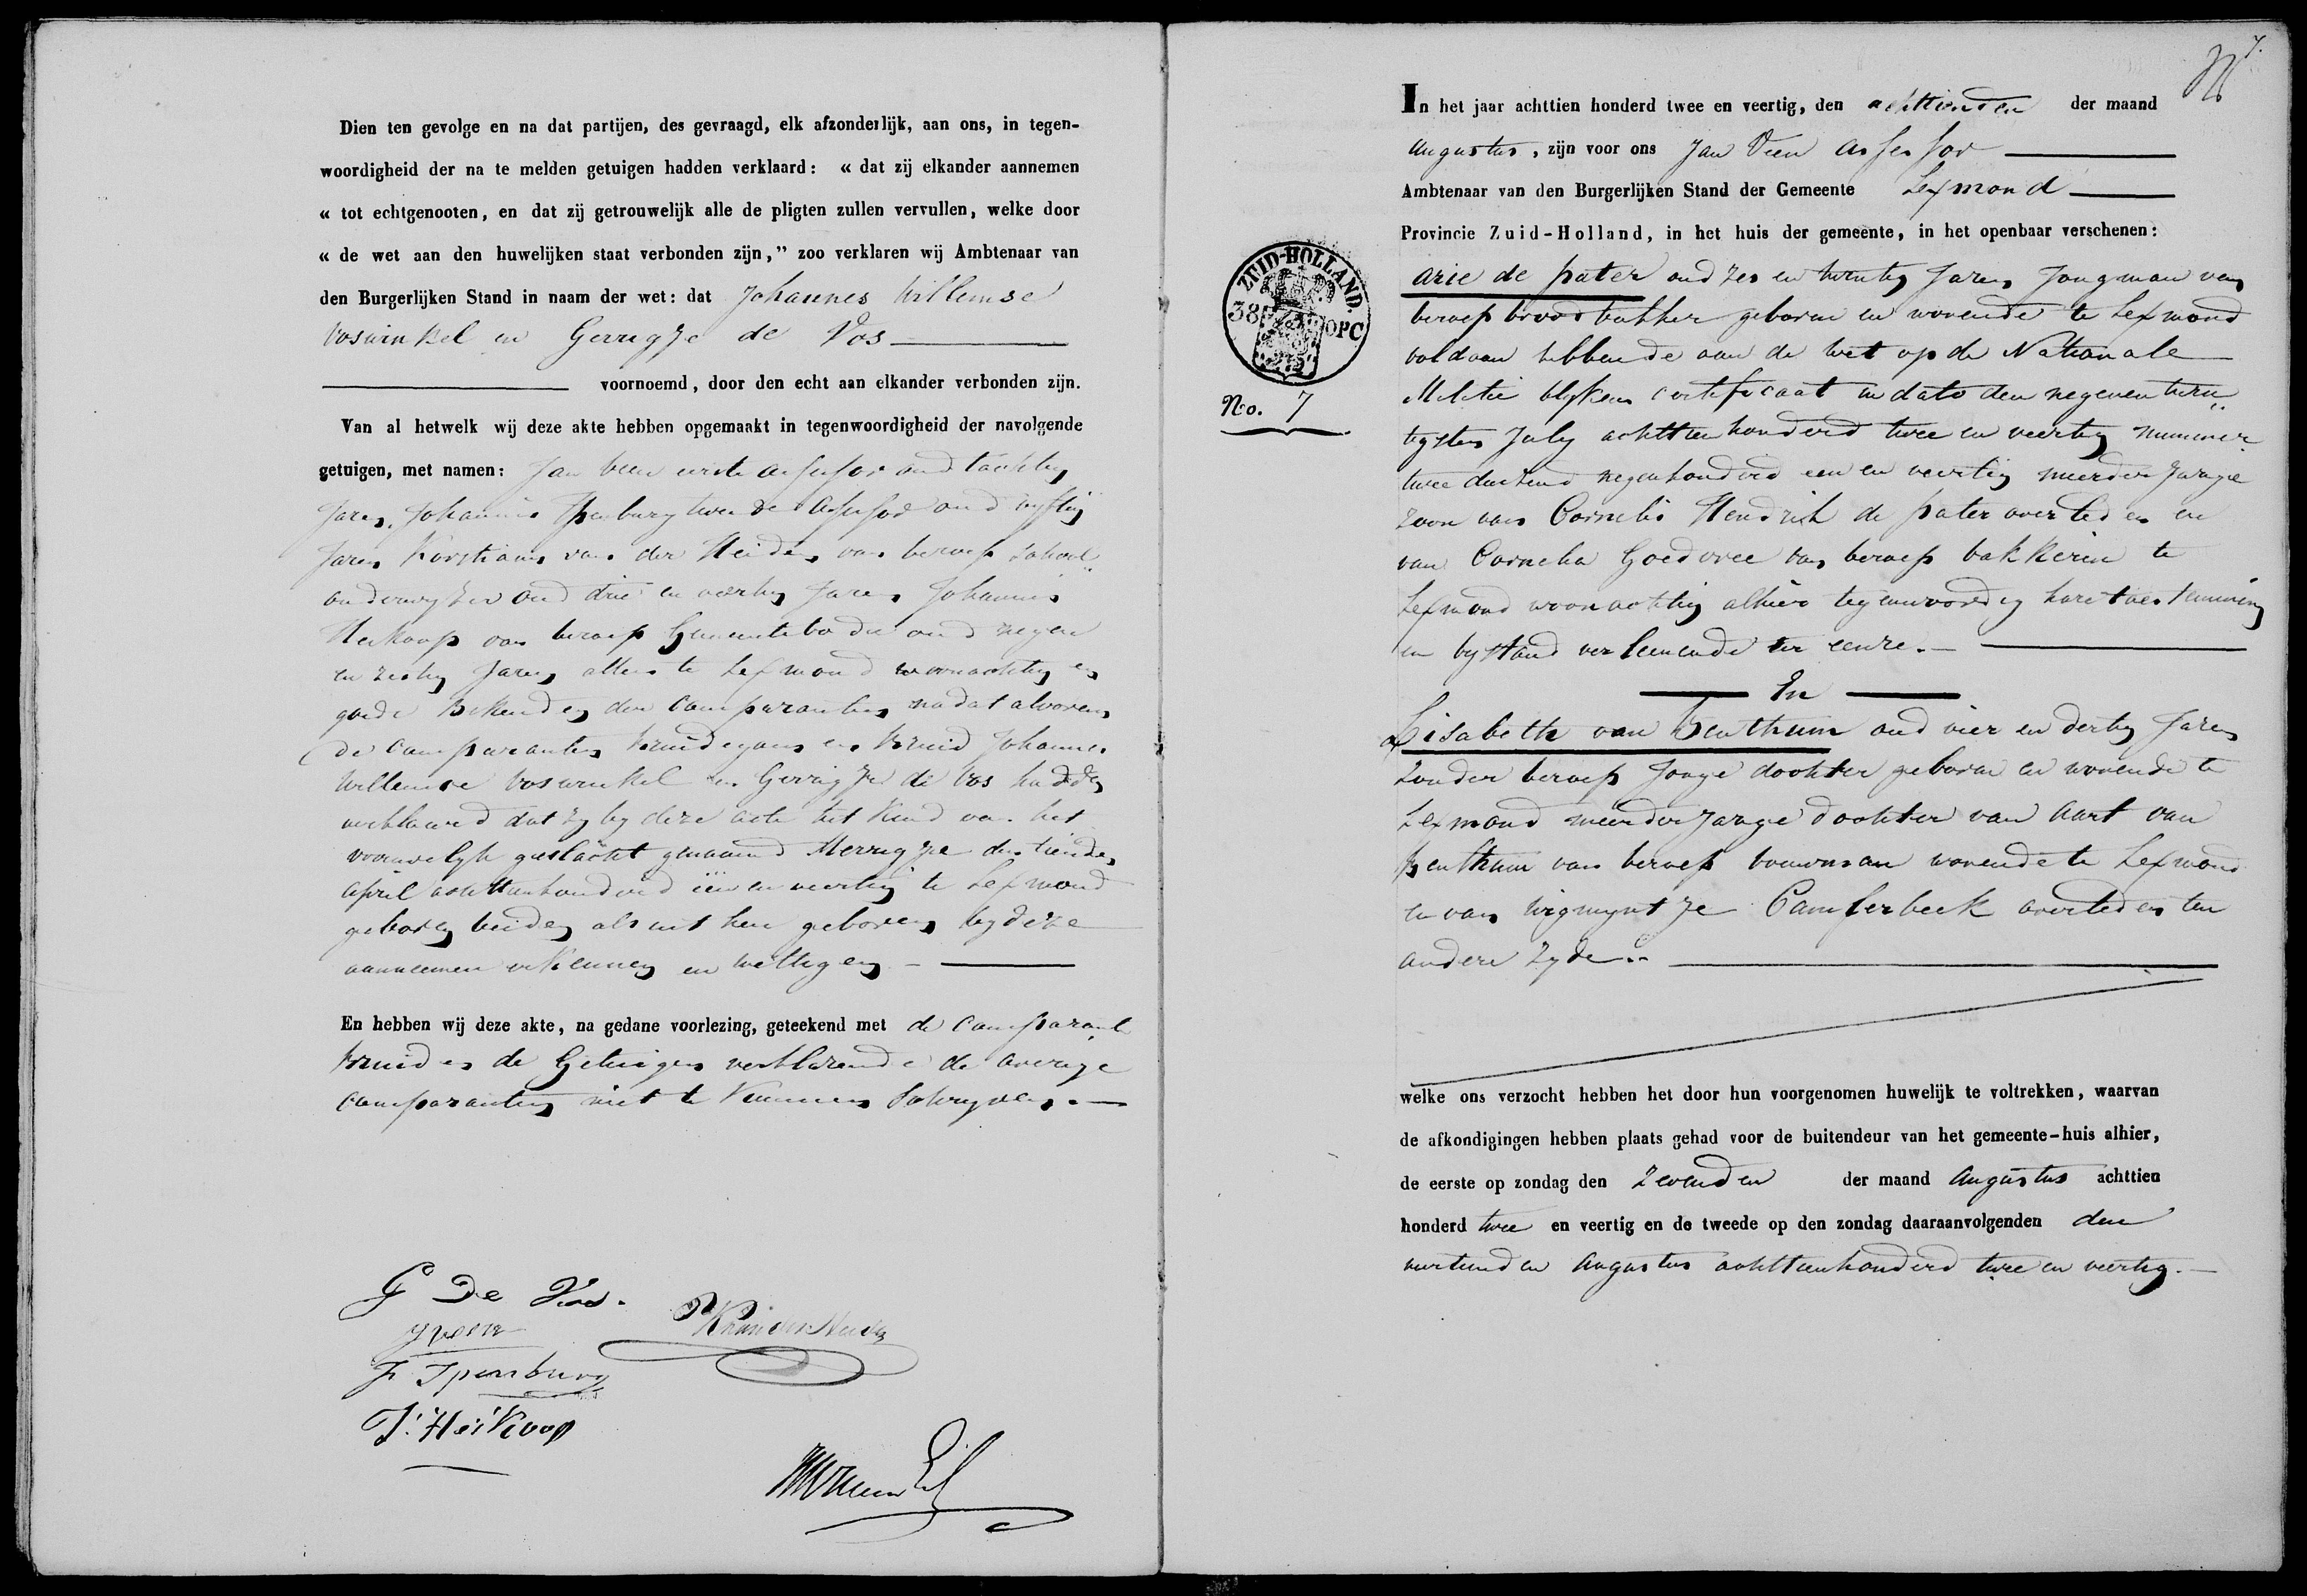 Dien ten gevolge en na dat partijen, des gevraagd, elk afzonderlijk, aan ons, in tegen-
woordigheid der na te melden getuigen hadden verklaard: « dat zij elkander aannemen
« tot echtgenooten, en dat zij getrouwelijk alle de pligten zullen vervullen, welke door
« de wet aan den huwelijken staat verbonden zijn," zoo verklaren wij Ambtenaar van
den Burgerlijken Stand in naam der wet: dat Johannes Willemse
Voswinkel en Gerrigje de Vos
voornoemd, door den echt aan elkander verbonden zijn.
Van al hetwelk wij deze akte hebben opgemaakt in tegenwoordigheid der navolgende
getuigen, met namen: Jan Veen eerste assessor oud tachtig
Jaren, Johannis Spenburg tweede Assessor oud vyftig
Jaren Korstiaan van der Heiden van beroep School„
onderwyzer oud drie en veertig Jaren Johannis
Heikoop van beroep Gemeentebode oud negen
en zestig Jaren allen te Lexmond woonachtig en
goede bekenden der Comparanten nadat alvorens
de Comparanten Bruidegom en Bruid Johannes
Willemse Voswinkel en Gerrigje de Vos hadden
verklaard dat zy by deze acte het kind van het
vrouwelyk geslacht genaamd Merrigje den tienden
April achttienhonderd een en veertig te Lexmond
geboren beiden als uit hen geboren by deze
aanneemen erkennen en wettigen
En hebben wij deze akte, na gedane voorlezing, geteekend met de Comparante
Bruid en de Getuigen verklarende de overige
Comparanten niet te kunnen Schryven.
G De Vos.
J Veen
J. Spenburg
J. Heikoop
7.
In het jaar achttien honderd twee en veertig, den achttienden der maand
Augustus, zijn voor ons Jan Veen Assessor
Ambtenaar van den Burgerlijken Stand der Gemeente Lexmond
Provincie Zuid-Holland, in het huis der gemeente, in het openbaar verschenen:
ZUID-HOLLAND.
38 OPC
No. 7
Arie de Pater oud zes en twintig Jaren Jongman van
beroep broodbakker geboren en wonende te Lexmond
voldaan hebbende aan de Wet op de Nationale
Militie blyken certificaat in dato den negenentwin„
tigsten July achttienhonderd twee en veertig nummer
twee duizend negenhonderd een en veertig meerderjarige
zoon van Cornelis Hendrik de Pater overleden en
van Cornelia Goedvree van beroep bakkerin te
Lexmond woonachtig alhier tegenwoordig hare toestemming
en bystand verleenende ter eenre.
En
Lisabeth van Benthum oud vier en dertig Jaren
zonder beroep Jonge dochter geboren en wonende te
Lexmond meerderjarige dochter van Aart van
Benthum van beroep bouwman wonende te Lexmond
en van Wigmyntje Camferbeek overleden ten
andere zyde.
welke ons verzocht hebben het door hun voorgenomen huwelijk te voltrekken, waarvan
de afkondigingen hebben plaats gehad voor de buitendeur van het gemeente-huis alhier,
de eerste op zondag den zevenden der maand Augustus achttien
honderd twee en veertig en de tweede op den zondag daaraanvolgenden den
veertienden Augustus achttienhonderd twee en veertig.